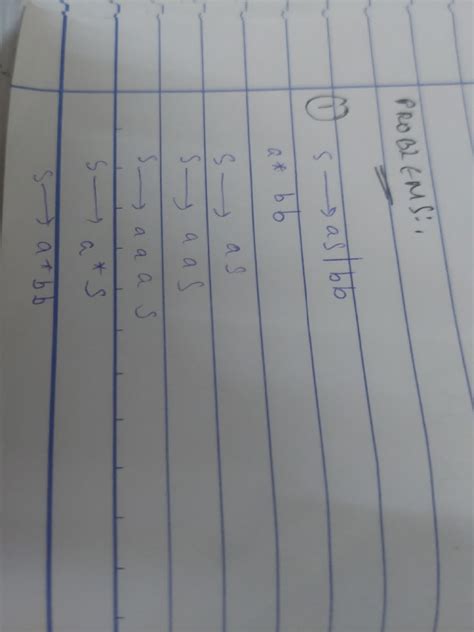 PROBLEMS:
① S → aS|bb
a* bb
S → aS
S → aaS
S → aaaS
S → a*S
S → a*bb